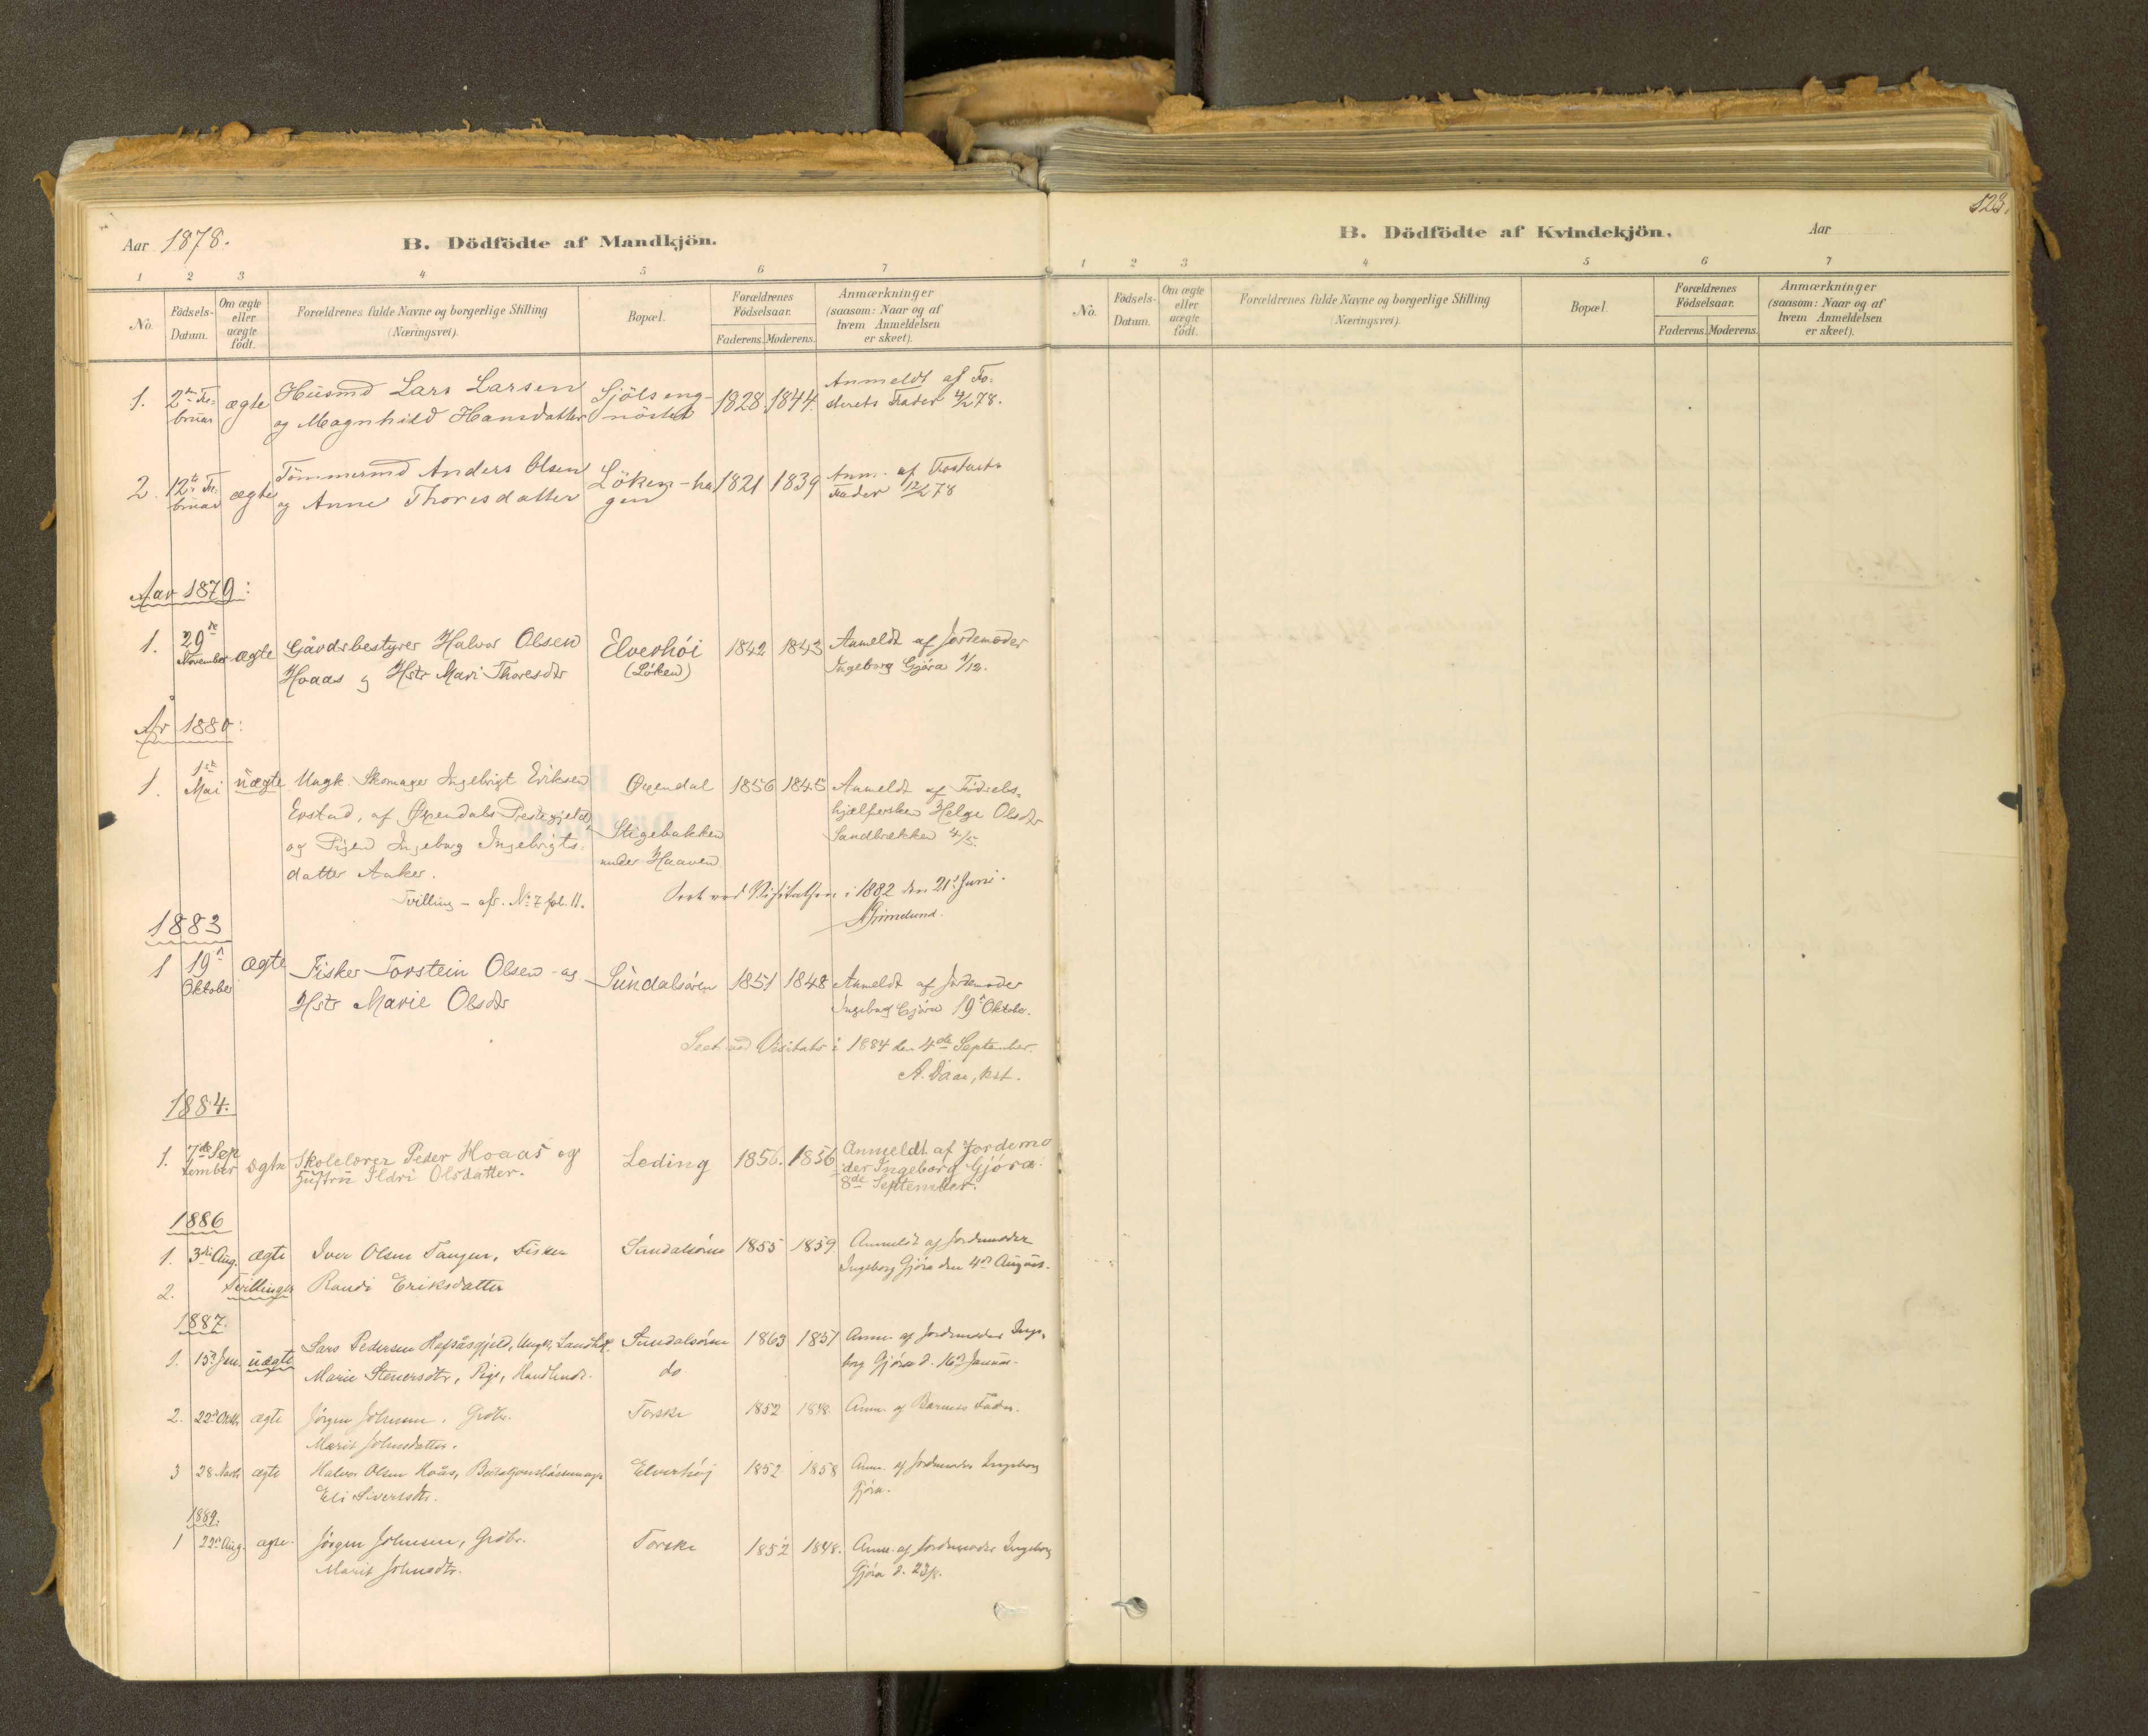 Aar 1878.
B. Dödfödte af Mandkjön.
1 2 3 4 5 6 7
No.
Födsels-Datum.
Om ægte eller uægte födt.
Forældrenes fulde Navne og borgerlige Stilling (Næringsvei).
Bopæl.
Forældrenes Födselsaar.
Faderens. Moderens.
Anmærkninger (saasom: Naar og af hvem Anmeldelsen er skeet).
1. 2den Fe- ægte Husmd Lars Larsen Sjölseng- 1828 1844. Anmeldt af Fo-
bruar og Magnhild Hansdatter nöstet sterets Fader 4/2 78.
2. 12te Fe- ægte Tömmermd Anders Olsen Löken-ha 1821 1839 Anm. af Fosterets
bruar og Anne Thoresdatter gen Fader 12/2 78
Aar 1879:
1. 29de November ægte Gårdsbestyrer Halvor Olsen Elverhöi 1842 1843 Anmeldt af Jordemoder
Hoaas og Hstr Mari Thoresdtr (Löken) Ingeborg Gjöra 1/12.
År 1880:
1. 1ste Mai uægte Ungk. Skomager Ingebrigt Eriksen Öxendal 1856 1845 Anmeldt af Födsels-
Erstad, af Öxendals Prestegjeld hjælpersken Helge Olsdtr
og Pigen Ingeborg Ingebrigts- Stigebakken Sandbrækken 4/5.
datter Anker. under Haaven
Tvilling - cfr. No 7 fol. 11.
Seet ved Visitatsen i 1882 den 21de Juni.
Grimelund.
1883
1 19de Oktober ægte Fisker Torstein Olsen og Sundalsören 1851 1848 Anmeldt af Jordemoder
Hstr Marie Olsdtr Ingeborg Gjöra 19de Oktober.
Seet ved Visitats i 1884 den 4de September.
A. Daae, kst.
1884.
1. 7de Sep ægte Skolelærer Peder Hoaas og Leding 1856. 1856 Anmeldt af Jordemo
tember Hustru Ildri Olsdatter. der Ingeborg Gjöra
8de September.
1886
1. 3die Aug. ægte Iver Olsen Tangen, Fisker Sundalsören 1855 1859 Anmeldt af Jordemoder
Ingeborg Gjöra den 4de August.
2. Tvillinger Randi Eriksdatter
1887.
1. 15de Jan. uægte Lars Pedersen Hafsåsgjeld, Ungk., Sundalsören 1863 1851 Anm. af Jordemoder Inge-
Marie Steuersdtr, Pige, do borg Gjöra d. 16de Januar.
2. 22de Oktbr. ægte Jörgen Johnsen, Grdbr. Torske 1852 1848. Anm. af Barnets Fader.
Marit Johnsdatter.
3 28 Novb. ægte Halvor Olsen Hoås, Elverhöj 1852 1858 Anm. af Jordemoder Ingeborg
Eli Sivertsdtr. Gjöra.
1889.
1 22de Aug. ægte Jörgen Johnsen, Grdbr. Torske 1852 1848. Anm. af Jordemoder Ingeborg
Marit Johnsdtr. Gjöra d. 23/8.
123.
B. Dödfödte af Kvindekjön.
Aar
1 2 3 4 5 6 7
No.
Födsels-Datum.
Om ægte eller uægte födt.
Forældrenes fulde Navne og borgerlige Stilling (Næringsvei).
Bopæl.
Forældrenes Födselsaar.
Faderens. Moderens.
Anmærkninger (saasom: Naar og af hvem Anmeldelsen er skeet).